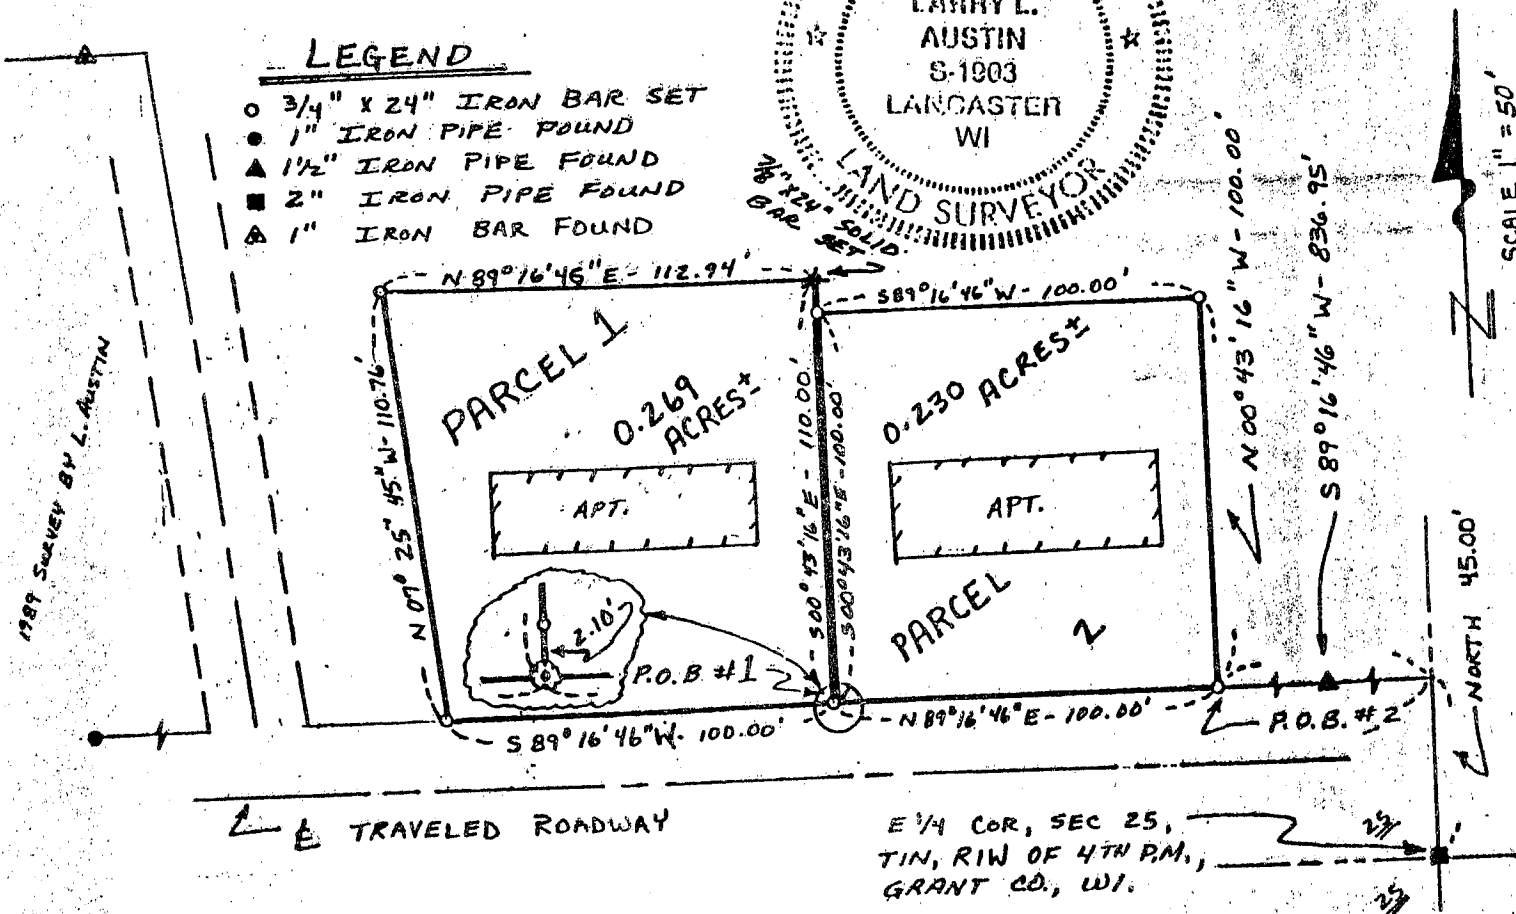 LEGEND
3/4" X 24" IRON BAR SET
1" IRON PIPE FOUND
1½" IRON PIPE FOUND
2" IRON PIPE FOUND
1" IRON BAR FOUND
LARRY L.
AUSTIN
S-1903
LANCASTER
WI
LAND SURVEYOR
X24" SOLID
BAR SET
SCALE 1"=50'
1989 SURVEY BY L. AUSTIN
N 89°16'46" E - 112.94'
S 89°16'46" W - 100.00'
N 00°43'16" W - 100.00'
S 89°16'46" W - 836.95'
N 07° 25" 45" W - 110.76'
PARCEL 1
0.269
ACRES±
APT.
S00°43'16"E - 110.00'
S00°43'16"E - 100.00'
0.230 ACRES±
APT.
PARCEL 2
2.10'
P.O.B #1
S 89°16'46" W - 100.00'
N 89°16'46" E - 100.00'
P.O.B. #2
NORTH 45.00'
℄ TRAVELED ROADWAY
E 1/4 COR, SEC 25,
T1N, R1W OF 4TH P.M.,
GRANT CO., WI.
25
25